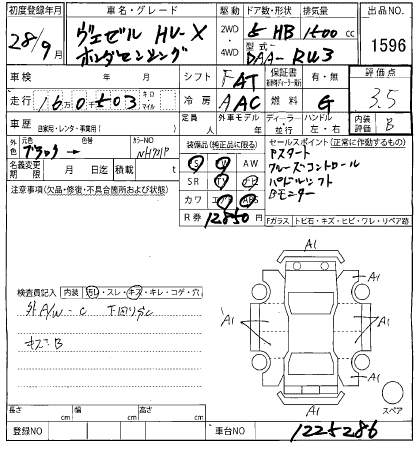 初度登録年月 車名・グレード 駆動 ドア数・形状 排気量 出品NO.
28/9月 ヴェゼル HV-X ホンダセンシング 2WD・4WD 5 HB 1500cc 1596
型式 DAA-RU3
車検 年 月 シフト FAT 保証書 有・無 評価点
走行 16万0千503 キロ マイル 冷房 AAC 燃料 G 3.5
車歴 自家用・レンタ・事業用( ) 定員 人 外車モデル 年 ディーラー・並行 ハンドル 左・右 内装評価 B
外色 元色 ブラック 色替 カラーNO NH731P
装備品(純正品に限る) セールスポイント(正常に作動するもの)
名義変更期限 月 日迄 積載 t
SR TV AW
Pスタート
クルーズコントロール
パドルシフト
Bモニター
注意事項(欠品・修復・不具合箇所および状態)
カワ エアB ABS
R券 12850円
Fガラス トビ石・キズ・ヒビ・ワレ・リペア跡
A1
A1 A1
A1 A1
A1 A1
A1
検査員記入 内装 汚レ・スレ・キズ・キレ・コゲ・穴
外A/W-C 下回りサC
キズB
スペア
長さ cm 幅 cm 高さ cm
登録NO 車台NO 1225286